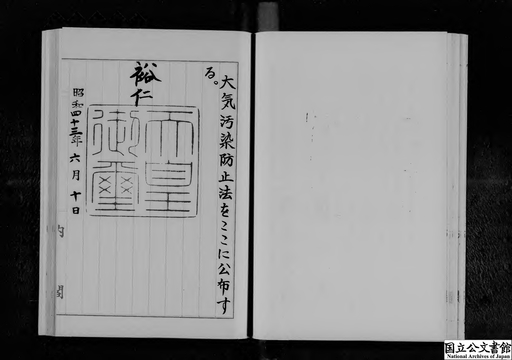 大気汚染防止法をここに公布す
る。
裕仁
天皇
御璽
昭和四十三年六月十日
内閣
国立公文書館
National Archives of Japan